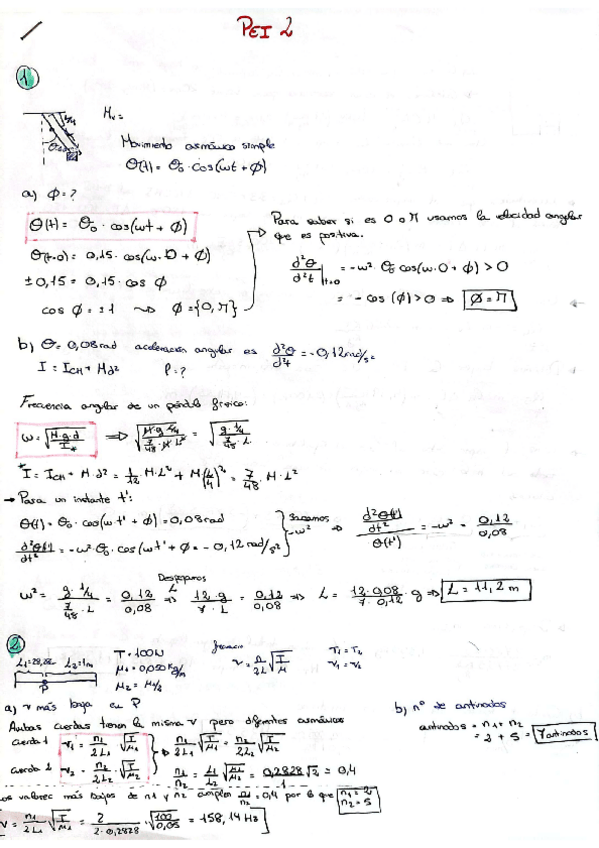 PEI 2
1
L/4
Movimiento armónico simple
θ(t) = θ₀ · cos(ωt + ϕ)
a) ϕ = ?
θ(t) = θ₀ · cos(ωt + ϕ)
θ(t=0) = 0,15 · cos(ω · 0 + ϕ)
± 0,15 = 0,15 · cos ϕ
cos ϕ = ±1 ⇝ ϕ = {0, π}
Para saber si es 0 o π usamos la velocidad angular
que es positiva.
d²θ/d²t |t=0 = -ω² · θ₀ cos(ω · 0 + ϕ) > 0
= - cos (ϕ) > 0 ⇒ ϕ = π
b) θ = 0,08 rad aceleración angular es d²θ/d²t = -0,12 rad/s²
I = I_CM + Md² ℓ = ?
Frecuencia angular de un péndulo físico:
ω = √(M·g·d/I*) ⇒ √(M·g·L/4 / 7/48·M·L²) = √(g·1/4 / 7/48·L)
* I = I_CM + M·d² = 1/12 M·L² + M(L/4)² = 7/48 · M·L²
→ Para un instante t':
θ(t) = θ₀ · cos(ωt' + ϕ) = 0,08 rad
d²θ(t)/dt² = -ω² · θ₀ · cos(ωt' + ϕ = -0,12 rad/s²
sacamos -ω² ⇒ d²θ(t)/dt² / θ(t') = -ω² = 0,12/0,08
Despejamos L
ω² = g·1/4 / 7/48·L = 0,12/0,08 ⇒ 12·g/7·L = 0,12/0,08 ⇒ L = 12·0,08/7·0,12 · g ⇒ L = 11,2 m
2
L₂ = 1m
P
T = 100 N
μ₁ = 0,050 Kg/m
μ₂ = μ/2
ν = n/2L √(T/μ)
T₁ = T₂
ν₁ = ν₂
a) ν más baja en P
Ambas cuerdas tienen la misma ν pero diferentes armónicos
cuerda 1 ν₁ = n₁/2L₁ · √(T/μ₁)
cuerda 2 ν₂ = n₂/2L₂ · √(T/μ₂)
n₁/2L₁ √(T/μ₁) = n₂/2L₂ √(T/μ₂)
n₁/n₂ = L₁/L₂ √(μ₁/μ₂) = 0,2828 √2/1 = 0,4
os valores más bajos de n1 y n2 cumplen n₁/n₂ = 0,4 por lo que n₁ = 2 n₂ = 5
ν = n₁/2L₁ √(T/μ₁) = 2/2·0,2828 · √(100/0,05) = 158,14 Hz
b) nº de antinodos
antinodos = n₁ + n₂
= 2 + 5 = 7 antinodos